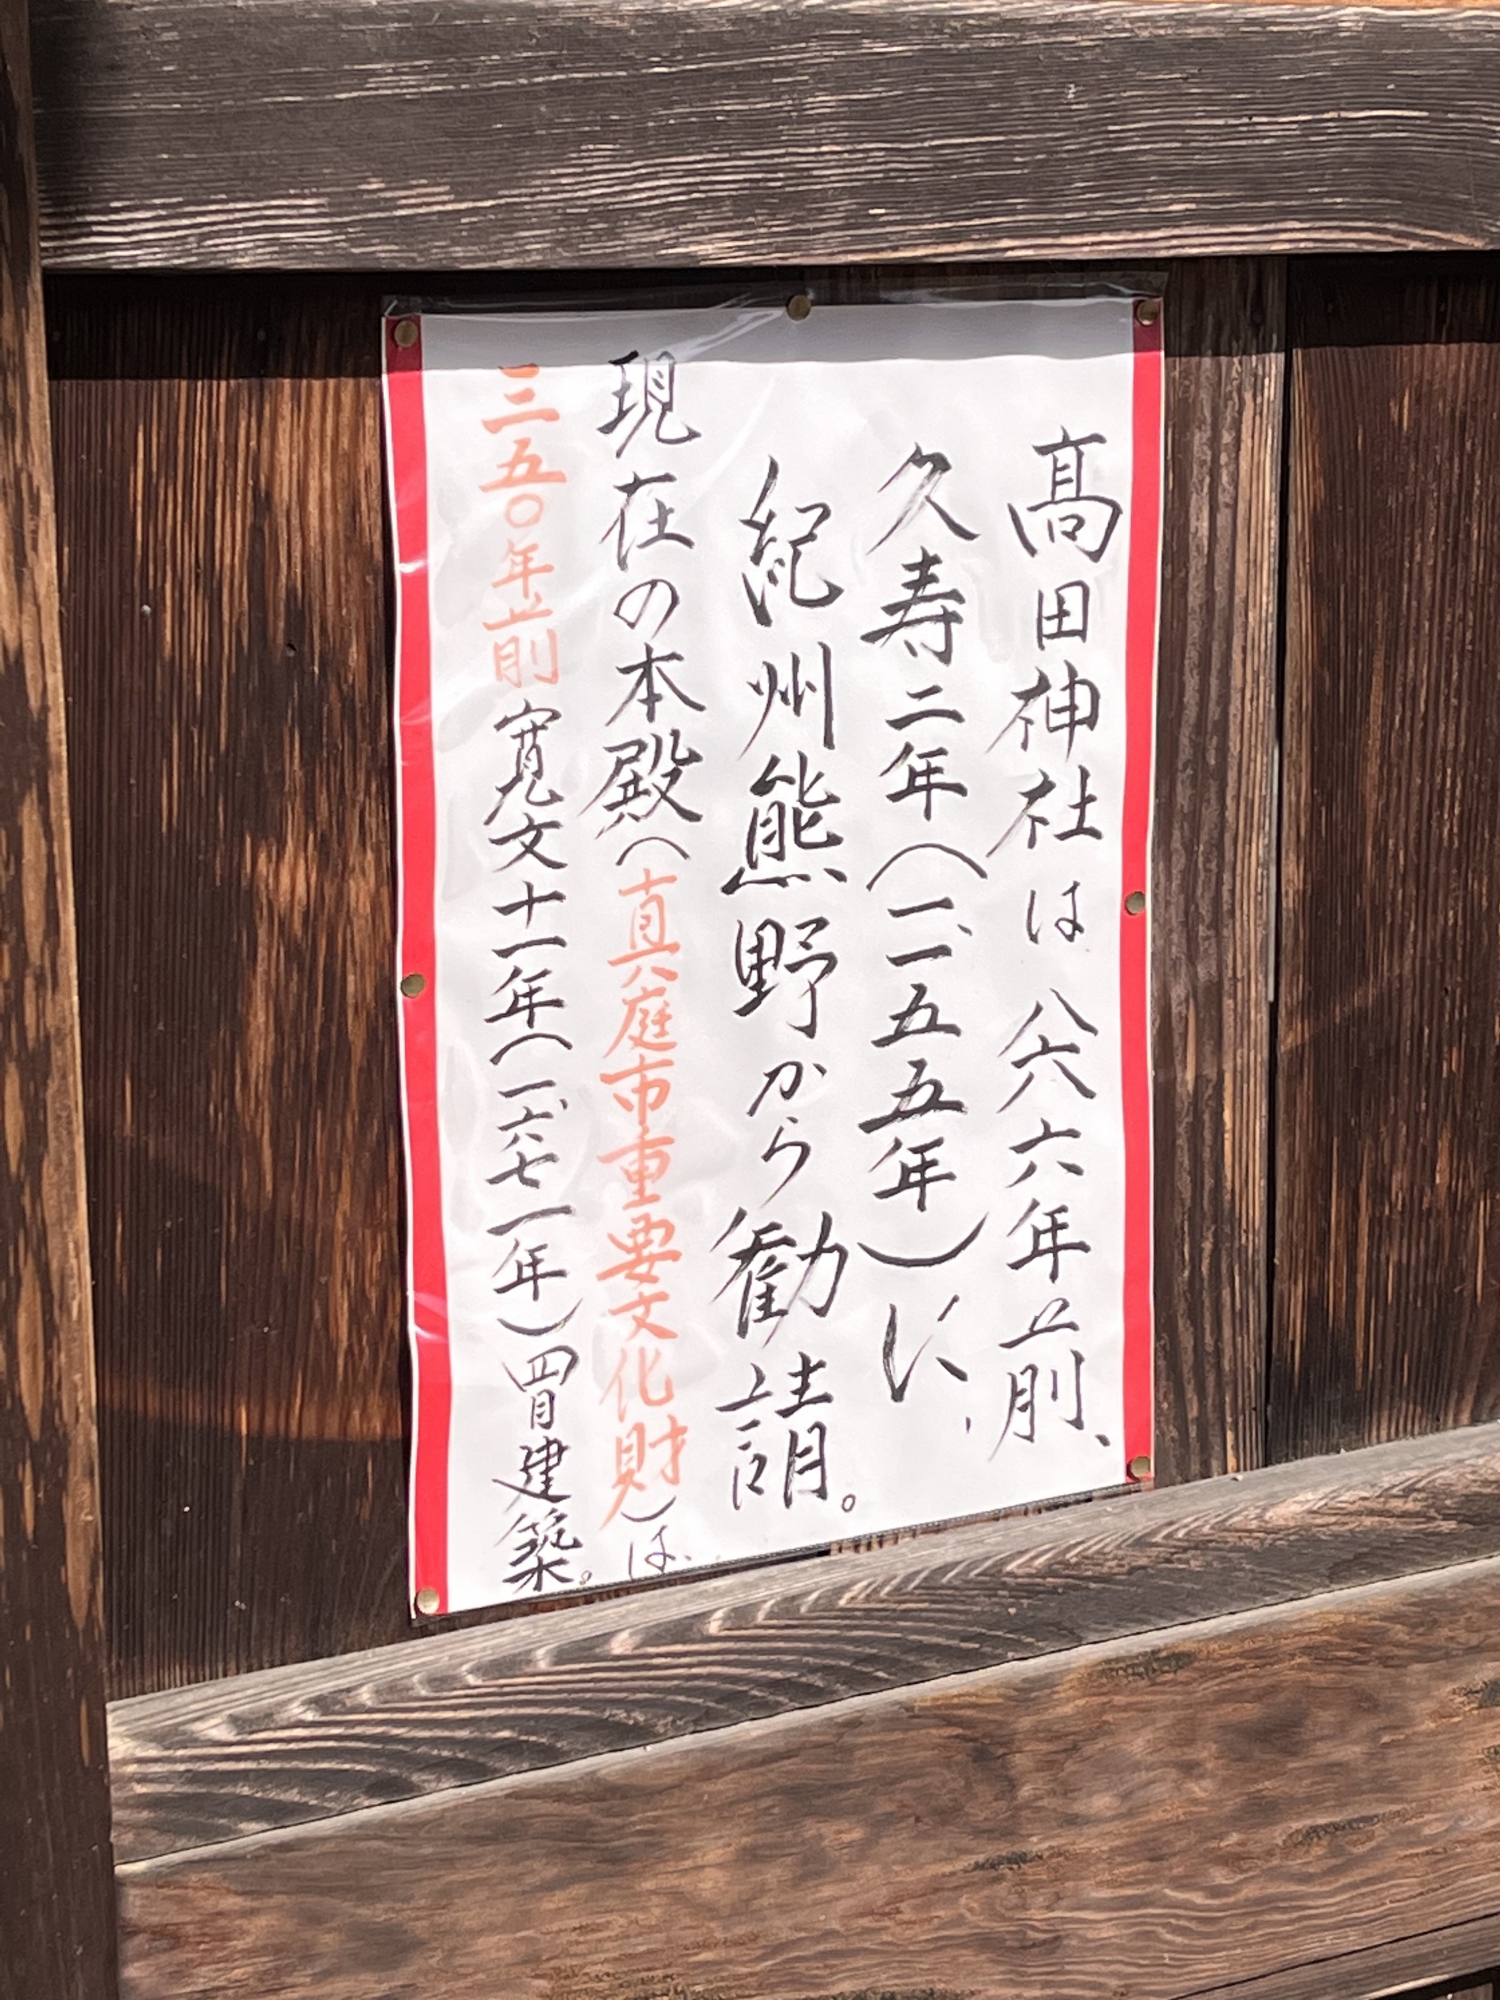 髙田神社は八六六年前、
久寿二年(一一五五年)に、
紀州熊野から勧請。
現在の本殿(真庭市重要文化財)は
三五〇年前寛文十一年(一六七一年)四月建築。